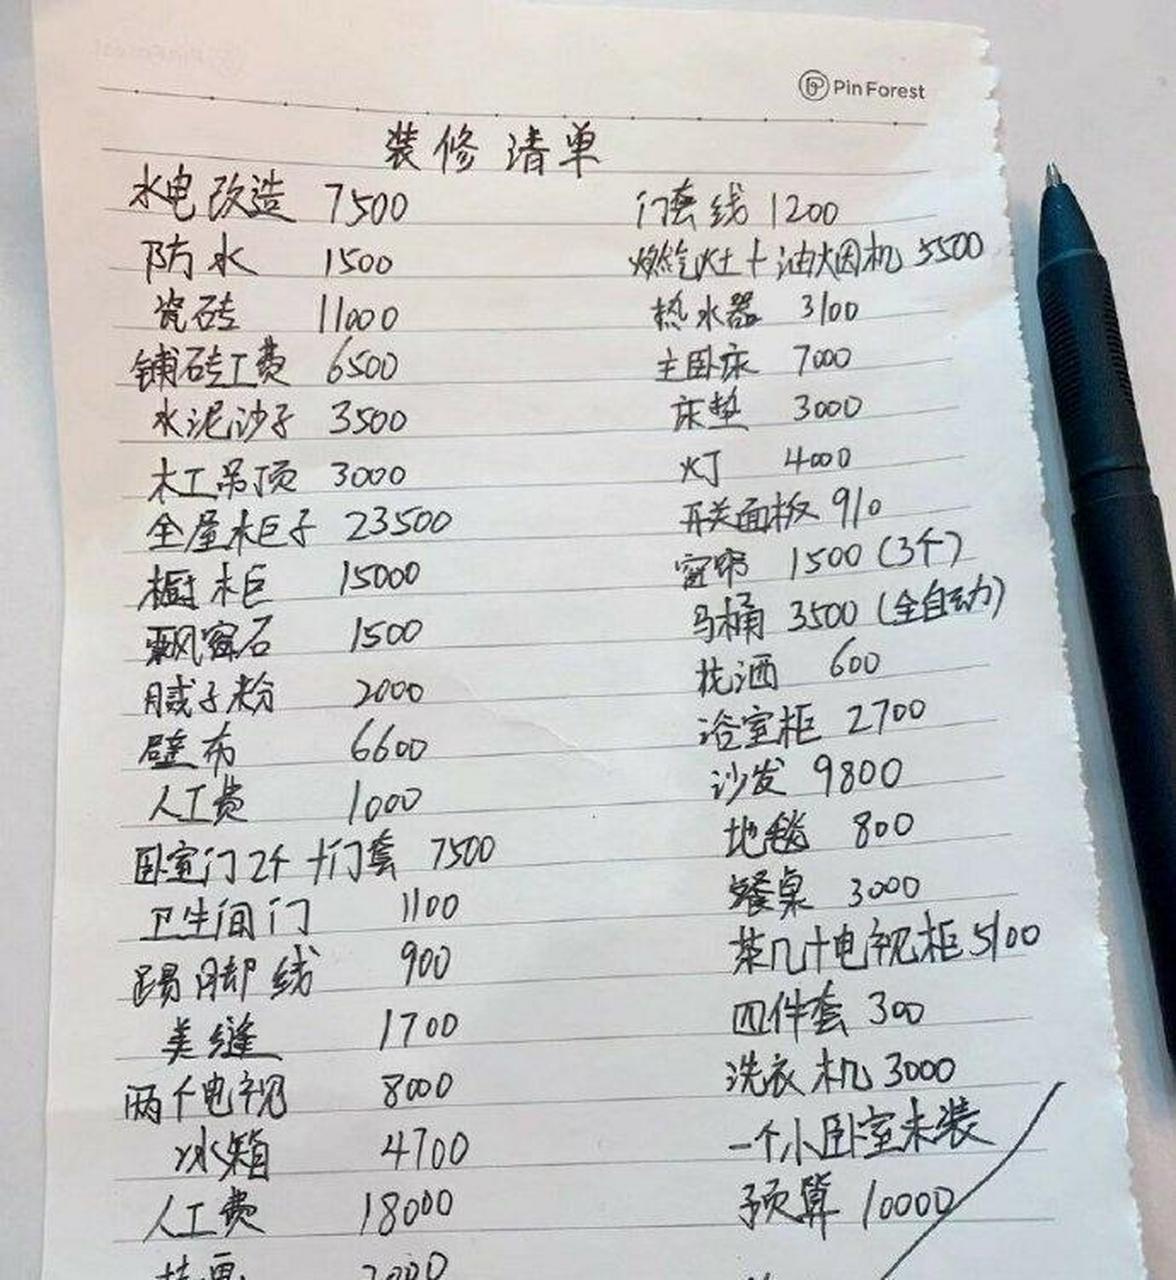 PinForest
装修清单
水电改造 7500
防水 1500
瓷砖 11000
铺砖工费 6500
水泥沙子 3500
木工吊顶 3000
全屋柜子 23500
橱柜 15000
飘窗石 1500
腻子粉 2000
壁布 6600
人工费 1000
卧室门2个+门套 7500
卫生间门 1100
踢脚线 900
美缝 1700
两个电视 8000
冰箱 4700
人工费 18000
挂画 2000
门套线 1200
燃气灶+油烟机 5500
热水器 3100
主卧床 7000
床垫 3000
灯 4000
开关面板 910
窗帘 1500(3个)
马桶 3500(全自动)
花洒 600
浴室柜 2700
沙发 9800
地毯 800
餐桌 3000
茶几+电视柜 5100
四件套 300
洗衣机 3000
一个小卧室未装
预算 10000